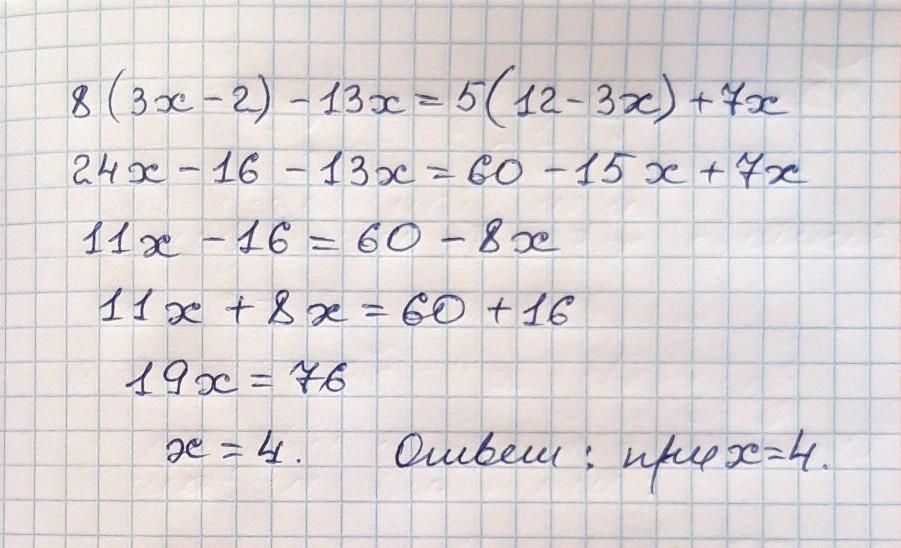 8(3x-2)-13x=5(12-3x)+7x
24x-16-13x=60-15x+7x
11x-16=60-8x
11x+8x=60+16
19x=76
x=4. Ответ: при x=4.